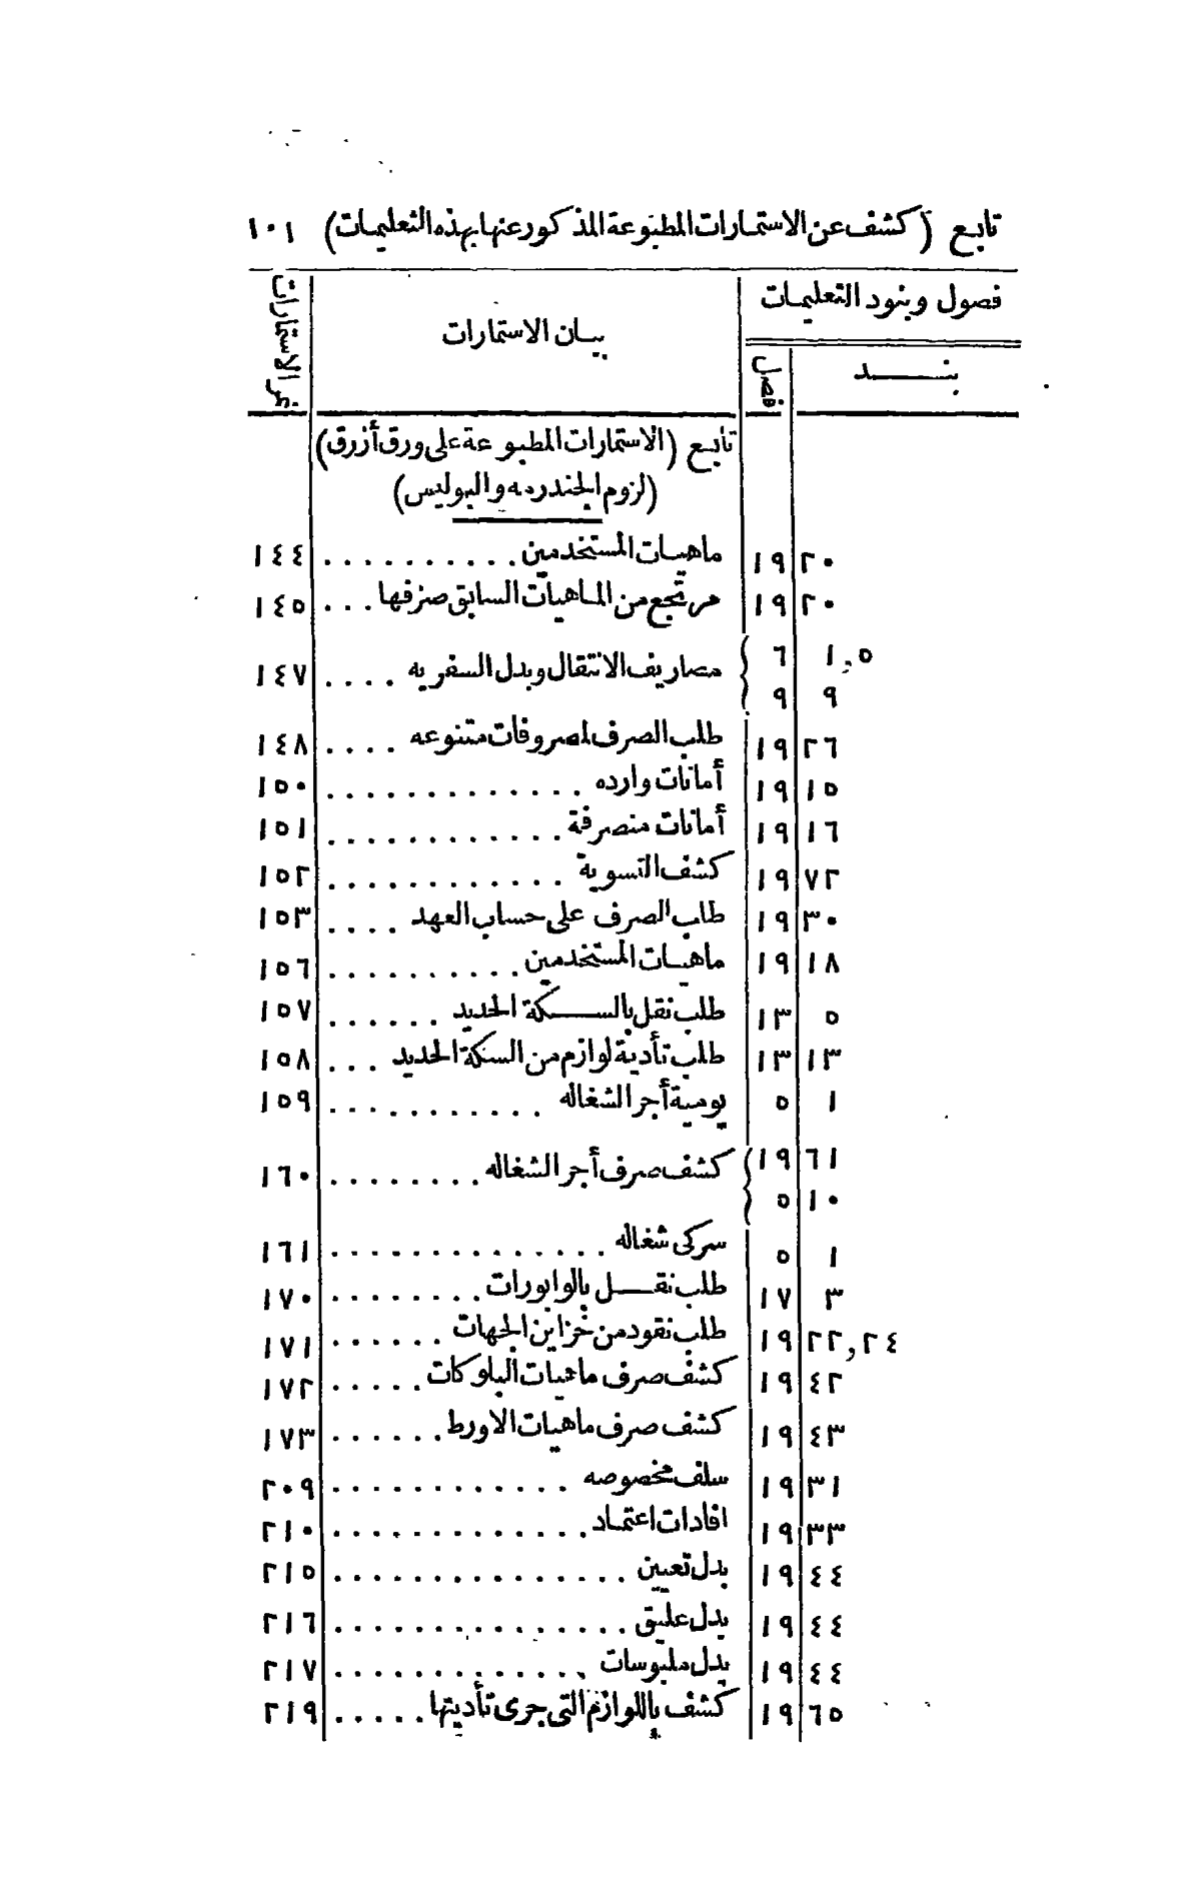 تابع (كشف عن الاستمارات المطبوعة المذكور عنها بهذه التعليمات) ١٠١
فصول وبنود التعليمات
بيان الاستمارات
نمر الاستمارات
بنـــد
فصل
تابع (الاستمارات المطبوعة على ورق أزرق)
(لزوم الجندرمه والبوليس)
٢٠ ١٩ ماهيات المستخدمين .......... ١٤٤
٢٠ ١٩ مرتجع من الماهيات السابق صرفها ... ١٤٥
١,٥ ٦
٩ ٩ } مصاريف الانتقال وبدل السفريه .... ١٤٧
٢٦ ١٩ طلب الصرف لمصروفات متنوعه .... ١٤٨
١٥ ١٩ أمانات وارده ............. ١٥٠
١٦ ١٩ أمانات منصرفة ............ ١٥١
٧٢ ١٩ كشف التسوية ............ ١٥٢
٣٠ ١٩ طلب الصرف على حساب العهد .... ١٥٣
١٨ ١٩ ماهيات المستخدمين .......... ١٥٦
٥ ١٣ طلب نقل بالسـكة الحديد ...... ١٥٧
١٣ ١٣ طلب تأدية لوازم من السكة الحديد ... ١٥٨
١ ٥ يومية أجر الشغاله ........... ١٥٩
٦١ ١٩
١٠ ٥ } كشف صرف أجر الشغاله ........ ١٦٠
١ ٥ سركى شغاله .............. ١٦١
٣ ١٧ طلب نقـل بالوابورات ........ ١٧٠
٢٢,٢٤ ١٩ طلب نقود من خزاين الجهات ...... ١٧١
٤٢ ١٩ كشف صرف ماهيات البلوكات ..... ١٧٢
٤٣ ١٩ كشف صرف ماهيات الاورط ...... ١٧٣
٣١ ١٩ سلف مخصوصه ............ ٢٠٩
٣٣ ١٩ افادات اعتماد ............. ٢١٠
٤٤ ١٩ بدل تعيين ............... ٢١٥
٤٤ ١٩ بدل عليق ............... ٢١٦
٤٤ ١٩ بدل ملبوسات ............. ٢١٧
٦٥ ١٩ كشف باللوازم التى جرى تأديتها ..... ٢١٩